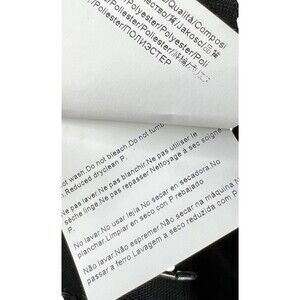 /Qualità/Composi
ество/質/Jakość/品質
Polyester/Polyester/Poli
Poliester/Polyester/
Poliester/ПОЛИЭСТЕР
ot wash.Do not bleach.Do not tumb
n.Reduced dryclean P.
Ne pas laver.Ne pas blanchir.Ne pas utiliser le
sèche linge.Ne pas repasser.Nettoyage à sec soigne
P.
No lavar.No usar lejía.No secar en secadora.No
planchar.Limpiar en seco con P rebajado
Não lavar.Não espremer.Não secar na máquina.N
passar a ferro Lavagem a seco reduzida com P